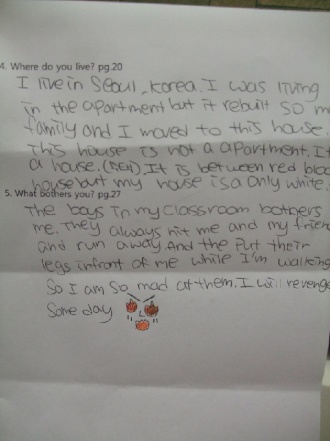 4. Where do you live? pg.20
I live in Seoul, Korea. I was living
in the apartment but it rebuilt so m
family and I moved to this house
This house is not a apartment. It
a house. It is between red bloc
house but my house is a only white.
5. What bothers you? pg.27
The boys in my classroom bothers
me. They always hit me and my friend
and run away. And the put their
legs infront of me while I'm walking
So I am so mad at them. I will revenge
Some day